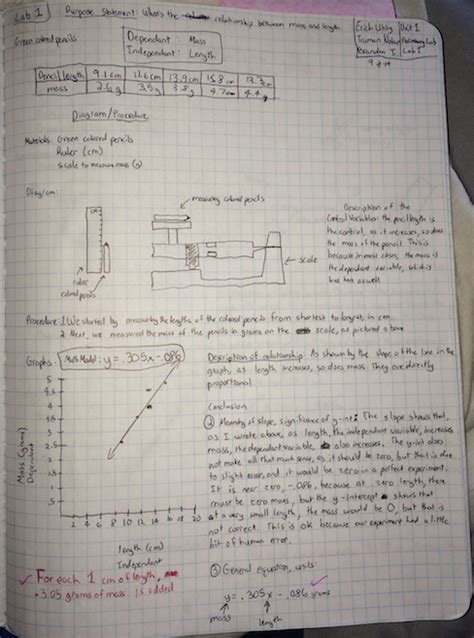 Lab 1
Purpose Statement: What's the relationship between mass and length
Green colored pencils
Dependent: Mass
Independent: Length
Unit 1
Lab 1
Pencil length 9.1cm 12.6cm 13.9cm 15.8cm
mass 2.6g 3.5g 3.8g 4.7 4.4g
Diagram/Procedure
Materials: Green colored pencils
Ruler (cm)
scale to measure mass (g)
Diagram:
measuring colored pencils
cm
ruler
colored pencils
scale
Description of the
Control Variables: the pencil length is
the control, as it increases, so does
the mass of the pencil. This is
because in most cases, the mass is
the dependent variable, which is
true here as well
Procedure: 1 We started by measuring the lengths of the colored pencils from shortest to longest, in cm.
2 Next, we measured the mass of the pencils in grams on the scale, as pictured above
Graphs: Math Model: y = .305x - .086
5
4.5
4
3.5
3
2.5
2
1.5
1
.5
2 4 6 8 10 12 14 16 18 20
Mass (grams)
Dependent
length (cm)
Independent
For each 1 cm of length,
.305 grams of mass is added
Description of relationship: As shown by the slope of the line in the
graph, as length increases, so does mass. They are directly
proportional.
Conclusion
② Meaning of slope, significance of y-int: The slope shows that,
as I wrote above, as length, the independent variable, increases
mass, the dependent variable, also increases. The y-int does
not make all that much sense, as it should be zero, but that is due
to slight error, and it would be zero in a perfect experiment.
It is near zero, -.086, because at zero length, there
must be zero mass, but the y-intercept shows that
at a very small length, the mass would be 0, but that is
not correct. This is ok because our experiment had a little
bit of human error.
③ General equation, units:
y = .305x - .086 grams
mass length